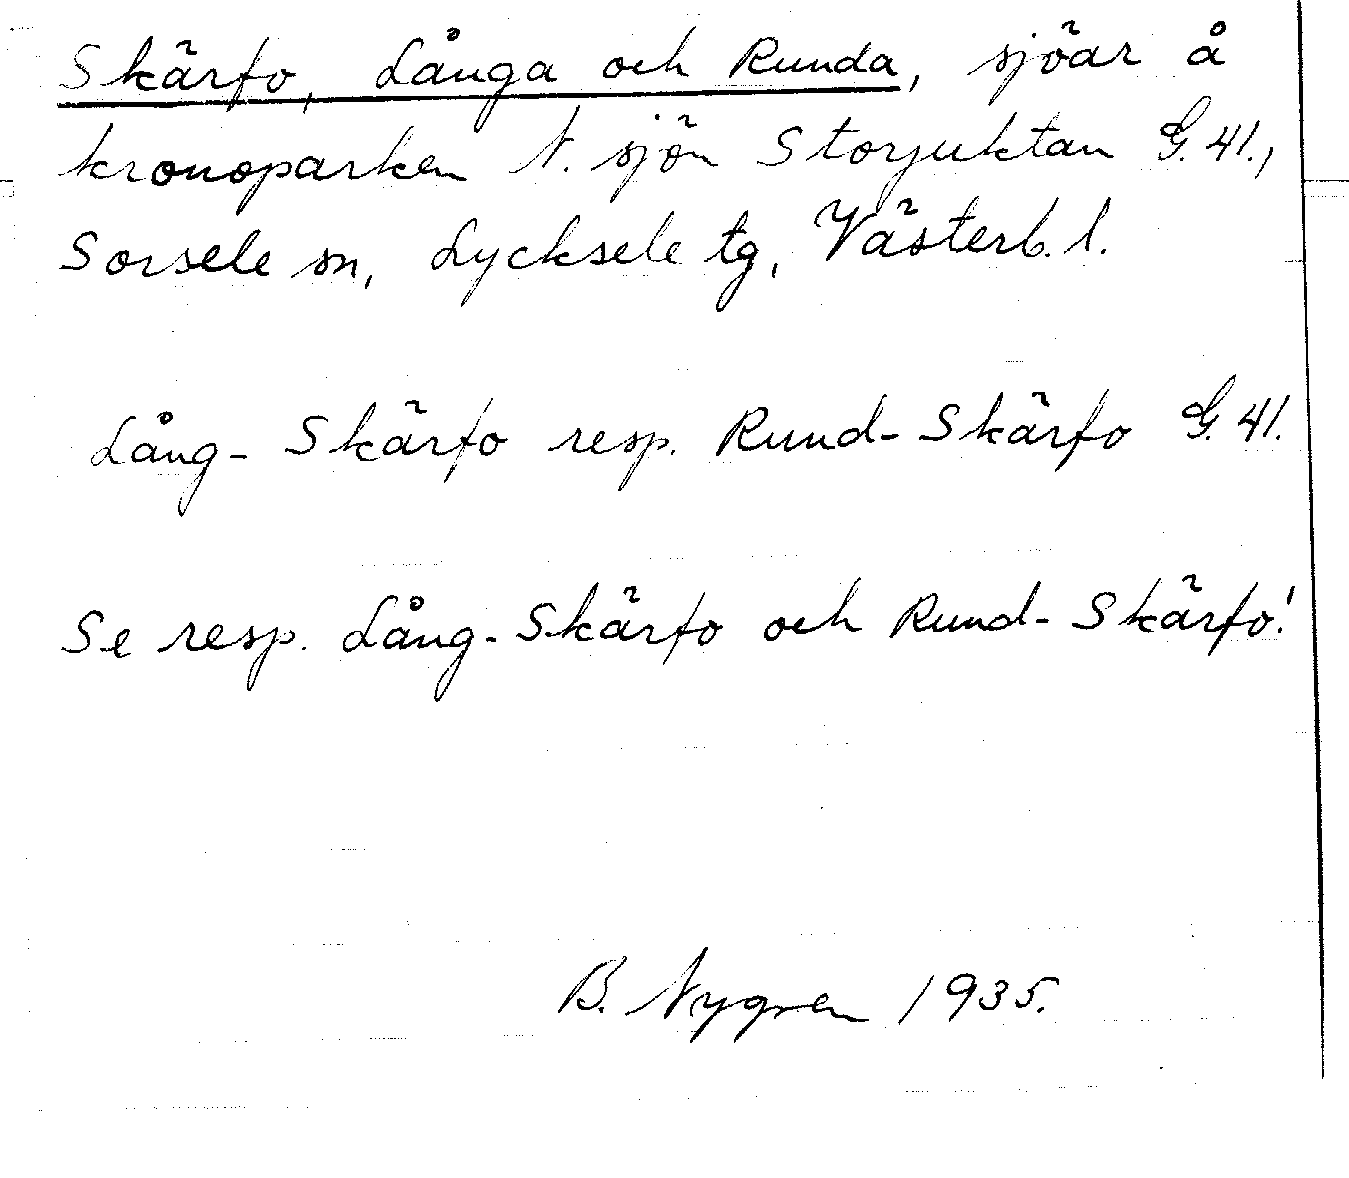 Skärfo, Långa och Runda, sjöar å
kronoparken N. sjön Storjuktan G. 41.,
Sorsele sn, Lycksele tg, Västerb. l.
Lång-Skärfo resp. Rund-Skärfo G. 41.
Se resp. Lång-Skärfo och Rund-Skärfo!
B. Nygren 1935.